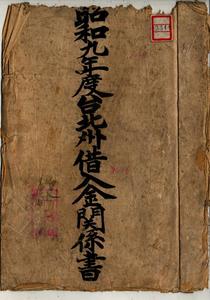 昭和九年度台北州借入金関係書